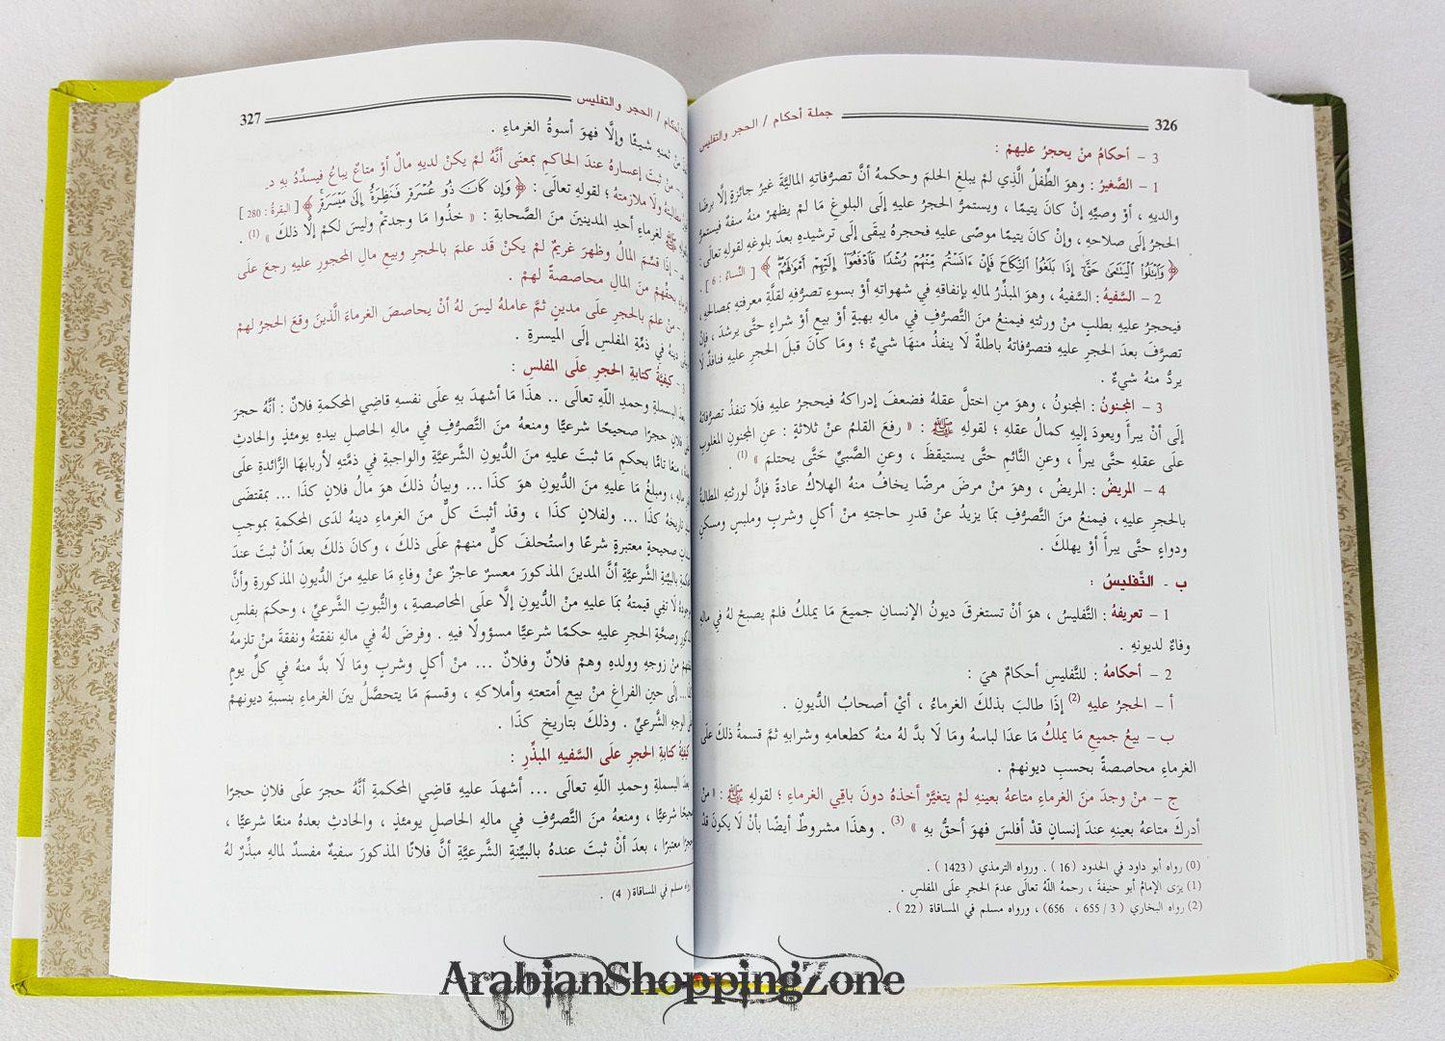 326
جملة أحكام / الحجر والتفليس
3 – أحكامُ منْ يحجرُ عليهِمْ :
1 – الصَّغيرُ : وهوَ الطِّفلُ الَّذِي لمْ يبلغِ الحلمَ وحكمهُ أنَّ تصرُّفاتهِ الماليَّةَ غيرُ جائزةٍ إلَّا برضَا
والديهِ ، أوْ وصيِّهِ إنْ كانَ يتيمًا ، ويستمرُّ الحجرُ عليهِ إلَى البلوغِ مَا لمْ يظهرْ منهُ سفهٌ فيستمرُّ
الحجرُ إلَى صلاحهِ ، وإنْ كانَ يتيمًا موصًى عليهِ فحجرهُ يبقَى إلَى ترشيدهِ بعدَ بلوغهِ لقولهِ تعالَى :
﴿ وَٱبْتَلُوا۟ ٱلْيَتَٰمَىٰ حَتَّىٰٓ إِذَا بَلَغُوا۟ ٱلنِّكَاحَ فَإِنْ ءَانَسْتُم مِّنْهُمْ رُشْدًا فَٱدْفَعُوٓا۟ إِلَيْهِمْ أَمْوَٰلَهُمْ ۖ ﴾ [ النِّساءُ : 6 ] .
2 – السَّفيهُ : السَّفيهُ ، وهوَ المبذِّرُ لمالهِ بإنفاقهِ فِي شهواتهِ أوْ بسوءِ تصرُّفهِ لقلَّةِ معرفتهِ بمصالحهِ ،
فيحجرُ عليهِ بطلبٍ منْ ورثتهِ فيمنعُ منَ التَّصرُّفِ فِي مالهِ بهبةٍ أوْ بيعٍ أوْ شراءٍ حتَّى يرشدَ ، فإنْ
تصرَّفَ بعدَ الحجرِ عليهِ فتصرُّفاتهُ باطلةٌ لَا ينفذُ منهَا شيءٌ ؛ ومَا كانَ قبلَ الحجرِ عليهِ فنافذٌ لَا
يردُّ منهُ شيءٌ .
3 – المجنونُ : المجنونُ ، وهوَ منِ اختلَّ عقلهُ فضعفَ إدراكهُ فيحجرُ عليهِ فلَا تنفذُ تصرُّفاتهُ
إلَى أنْ يبرأَ ويعودَ إليهِ كمالُ عقلهِ ؛ لقولهِ ﷺ : « رفعَ القلمُ عنْ ثلاثةٍ : عنِ المجنونِ المغلوبِ
علَى عقلهِ حتَّى يبرأَ ، وعنِ النَّائمِ حتَّى يستيقظَ ، وعنِ الصَّبيِّ حتَّى يحتلمَ » (1) .
4 – المريضُ : المريضُ ، وهوَ منْ مرضَ مرضًا يخافُ منهُ الهلاكُ عادةً فإنَّ لورثتهِ المطالبةُ
بالحجرِ عليهِ ، فيمنعُ منَ التَّصرُّفِ بمَا يزيدُ عنْ قدرِ حاجتهِ منْ أكلٍ وشربٍ وملبسٍ ومسكنٍ
ودواءٍ حتَّى يبرأَ أوْ يهلكَ .
ب - التَّفليسُ :
1 – تعريفهُ : التَّفليسُ ، هوَ أنْ تستغرقَ ديونُ الإنسانِ جميعَ مَا يملكُ فلمْ يصبحْ لهُ في مالهِ
وفاءٌ لديونهِ .
2 – أحكامهُ : للتَّفليسِ أحكامٌ هيَ :
أ – الحجرُ عليهِ (2) إذَا طالبَ بذلكَ الغرماءُ ، أيْ أصحابُ الدُّيونِ .
ب – بيعُ جميعِ مَا يملكُ مَا عدَا لباسهُ ومَا لَا بدَّ لهُ منهُ كطعامهِ وشرابهِ ثمَّ قسمةُ ذلكَ علَى
الغرماءِ محاصصةً بحسبِ ديونهمْ .
ج – منْ وجدَ منَ الغرماءِ متاعهُ بعينهِ لمْ يتغيَّرْ أخذهُ دونَ باقِي الغرماءِ ؛ لقولهِ ﷺ : « منْ
أدركَ متاعهُ بعينهِ عندَ إنسانٍ قدْ أفلسَ فهوَ أحقُّ بهِ » (3) . وهذَا مشروطٌ أيضًا بأنْ لَا يكونَ قدْ
(0) رواه أبو داود في الحدود ( 16 ) . ورواه الترمذي ( 1423 ) .
(1) يرَى الإمامُ أبو حنيفةَ ، رحمهُ اللّهُ تعالَى عدمَ الحجرِ علَى المفلسِ .
(2) رواه البخاري ( 3 / 655 ، 656) ، ورواه مسلم في المساقاة ( 22 ) .
327
أحكام / الحجر والتفليس
منْ ثمنهِ شيئًا وإلَّا فهوَ أسوةُ الغرماءِ .
منْ ثبتَ إعسارهُ عندَ الحاكمِ بمعنَى أنَّهُ لمْ يكنْ لديهِ مالٌ أوْ متاعٌ يباعُ فيسدِّدُ بهِ
مطالبتهُ ولَا ملازمتهُ ؛ لقولهِ تعالَى : ﴿ وَإِن كَانَ ذُو عُسْرَةٍ فَنَظِرَةٌ إِلَىٰ مَيْسَرَةٍ ۚ ﴾ [ البقرةُ : 280 ]
ﷺ لغرماءِ أحدِ المدينينَ منَ الصَّحابةِ : « خذُوا مَا وجدتمْ وليسَ لكمْ إلَّا ذلكَ » (1) .
إذَا قسِّمَ المالُ وظهرَ غريمٌ لمْ يكنْ قدْ علمَ بالحجرِ وبيعِ مالِ المحجورِ عليهِ رجعَ علَى
بحقِّهمْ منَ المالِ محاصصةً لهمْ .
منْ علمَ بالحجرِ علَى مدينٍ ثمَّ عاملهُ ليسَ لهُ أنْ يحاصصَ الغرماءَ الَّذينَ وقعَ الحجرُ لهمْ
دينهُ فِي ذمَّةِ المفلسِ إلَى الميسرةِ .
كيفيَّةُ كتابةِ الحجرِ علَى المفلسِ :
البسملةِ وحمدِ اللّهِ تعالَى .. هذَا مَا أشهدَ بهِ علَى نفسهِ قاضِي المحكمةِ فلانٌ : أنَّهُ حجرَ
فلانٍ حجرًا صحيحًا شرعيًّا ومنعهُ منَ التَّصرُّفِ فِي مالهِ الحاصلِ بيدهِ يومئذٍ والحادثِ
منعًا تامًّا بحكمِ مَا ثبتَ عليهِ منَ الدُّيونِ الشَّرعيَّةِ والواجبةِ فِي ذمَّتهِ لأربابهَا الزَّائدةِ علَى
مالهِ ، ومبلغُ مَا عليهِ منَ الدُّيونِ هوَ كذَا ... وبيانُ ذلكَ هوَ مالُ فلانٍ كذَا ... بمقتضَى
تاريخهُ كذَا ... ولفلانٍ كذَا ، وقدْ أثبتَ كلٌّ منَ الغرماءِ دينهُ لدَى المحكمةِ بموجبِ
صحيحةٍ معتبرةٍ شرعًا واستُحلفَ كلٌّ منهمْ علَى ذلكَ ، وكانَ ذلكَ بعدَ أنْ ثبتَ عندَ
بالبيِّنةِ الشَّرعيَّةِ أنَّ المدينَ المذكورَ معسرٌ عاجزٌ عنْ وفاءِ مَا عليهِ منَ الدُّيونِ المذكورةِ وأنَّ
لَا تفِي قيمتهُ بمَا عليهِ منَ الدُّيونِ إلَّا علَى المحاصصةِ ، والثُّبوتِ الشَّرعيِّ ، وحكمَ بفلسِ
وصحَّةِ الحجرِ عليهِ حكمًا شرعيًّا مسؤولًا فيهِ . وفرضَ لهُ فِي مالهِ نفقتهُ ونفقةَ منْ تلزمهُ
منْ زوجهِ وولدهِ وهمْ فلانٌ وفلانٌ ... منْ أكلٍ وشربٍ ومَا لَا بدَّ منهُ فِي كلِّ يومٍ
... إلَى حينِ الفراغِ منْ بيعِ أمتعتهِ وأملاكهِ ، وقسمِ مَا يتحصَّلُ بينَ الغرماءِ بنسبةِ ديونهمْ
الوجهِ الشَّرعيِّ . وذلكَ بتاريخِ كذَا .
كيفيَّةُ كتابةِ الحجرِ علَى السَّفيهِ المبذِّرِ :
البسملةِ وحمدِ اللّهِ تعالَى ... أشهدَ عليهِ قاضِي المحكمةِ أنَّهُ حجرَ علَى فلانٍ حجرًا
شرعيًّا ، ومنعهُ منَ التَّصرُّفِ فِي مالهِ الحاصلِ يومئذٍ ، والحادثِ بعدهُ منعًا شرعيًّا ،
معتبرًا ، بعدَ أنْ ثبتَ عندهُ بالبيِّنةِ الشَّرعيَّةِ أنَّ فلانًا المذكورَ سفيهٌ مفسدٌ لمالهِ مبذِّرٌ لهُ
رواه مسلم في المساقاة ( 4 ) .
ArabianShoppingZone